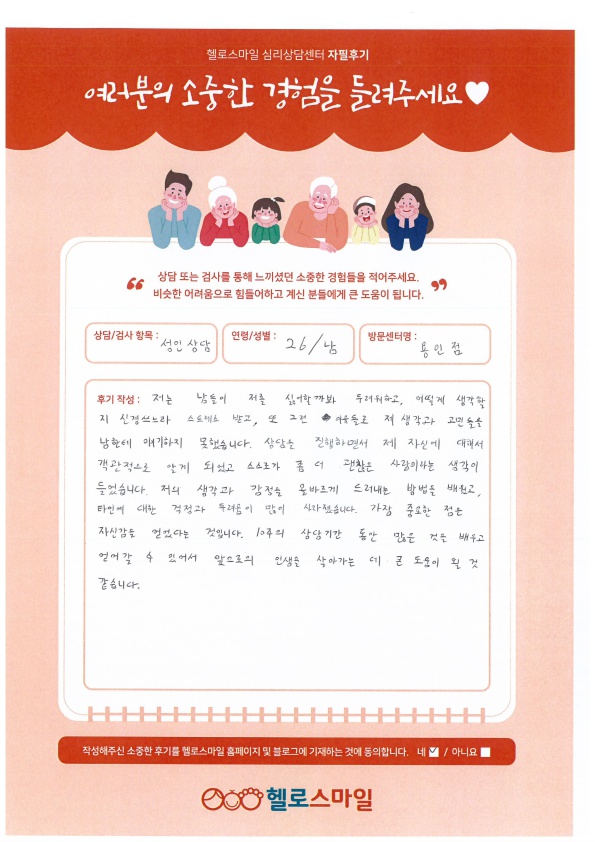 헬로스마일 심리상담센터 자필후기
여러분의 소중한 경험을 들려주세요
“ 상담 또는 검사를 통해 느끼셨던 소중한 경험들을 적어주세요.
비슷한 어려움으로 힘들어하고 계신 분들에게 큰 도움이 됩니다. ”
상담/검사 항목 : 성인 상담
연령/성별 : 26/남
방문센터명 : 용인점
후기 작성 : 저는 남들이 저를 싫어할까봐 두려워하고, 어떻게 생각할
지 신경쓰느라 스트레스 받고, 또 그런 이유들로 제 생각과 고민들을
남한테 이야기하지 못했습니다. 상담을 진행하면서 제 자신에 대해서
객관적으로 알게 되었고 스스로가 좀 더 괜찮은 사람이라는 생각이
들었습니다. 저의 생각과 감정을 올바르게 드러내는 방법을 배웠고,
타인에 대한 걱정과 두려움이 많이 사라졌습니다. 가장 중요한 점은
자신감을 얻었다는 것입니다. 10주의 상담기간 동안 많은 것을 배우고
얻어갈 수 있어서 앞으로의 인생을 살아가는 데 큰 도움이 될 것
같습니다.
작성해주신 소중한 후기를 헬로스마일 홈페이지 및 블로그에 기재하는 것에 동의합니다. 네 ☑ / 아니요 ☐
헬로스마일